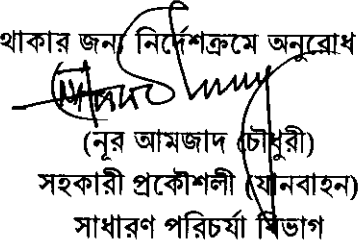 থাকার জন্য নির্দেশক্রমে অনুরোধ
(নূর আমজাদ চৌধুরী)
সহকারী প্রকৌশলী (যানবাহন)
সাধারণ পরিচর্যা বিভাগ